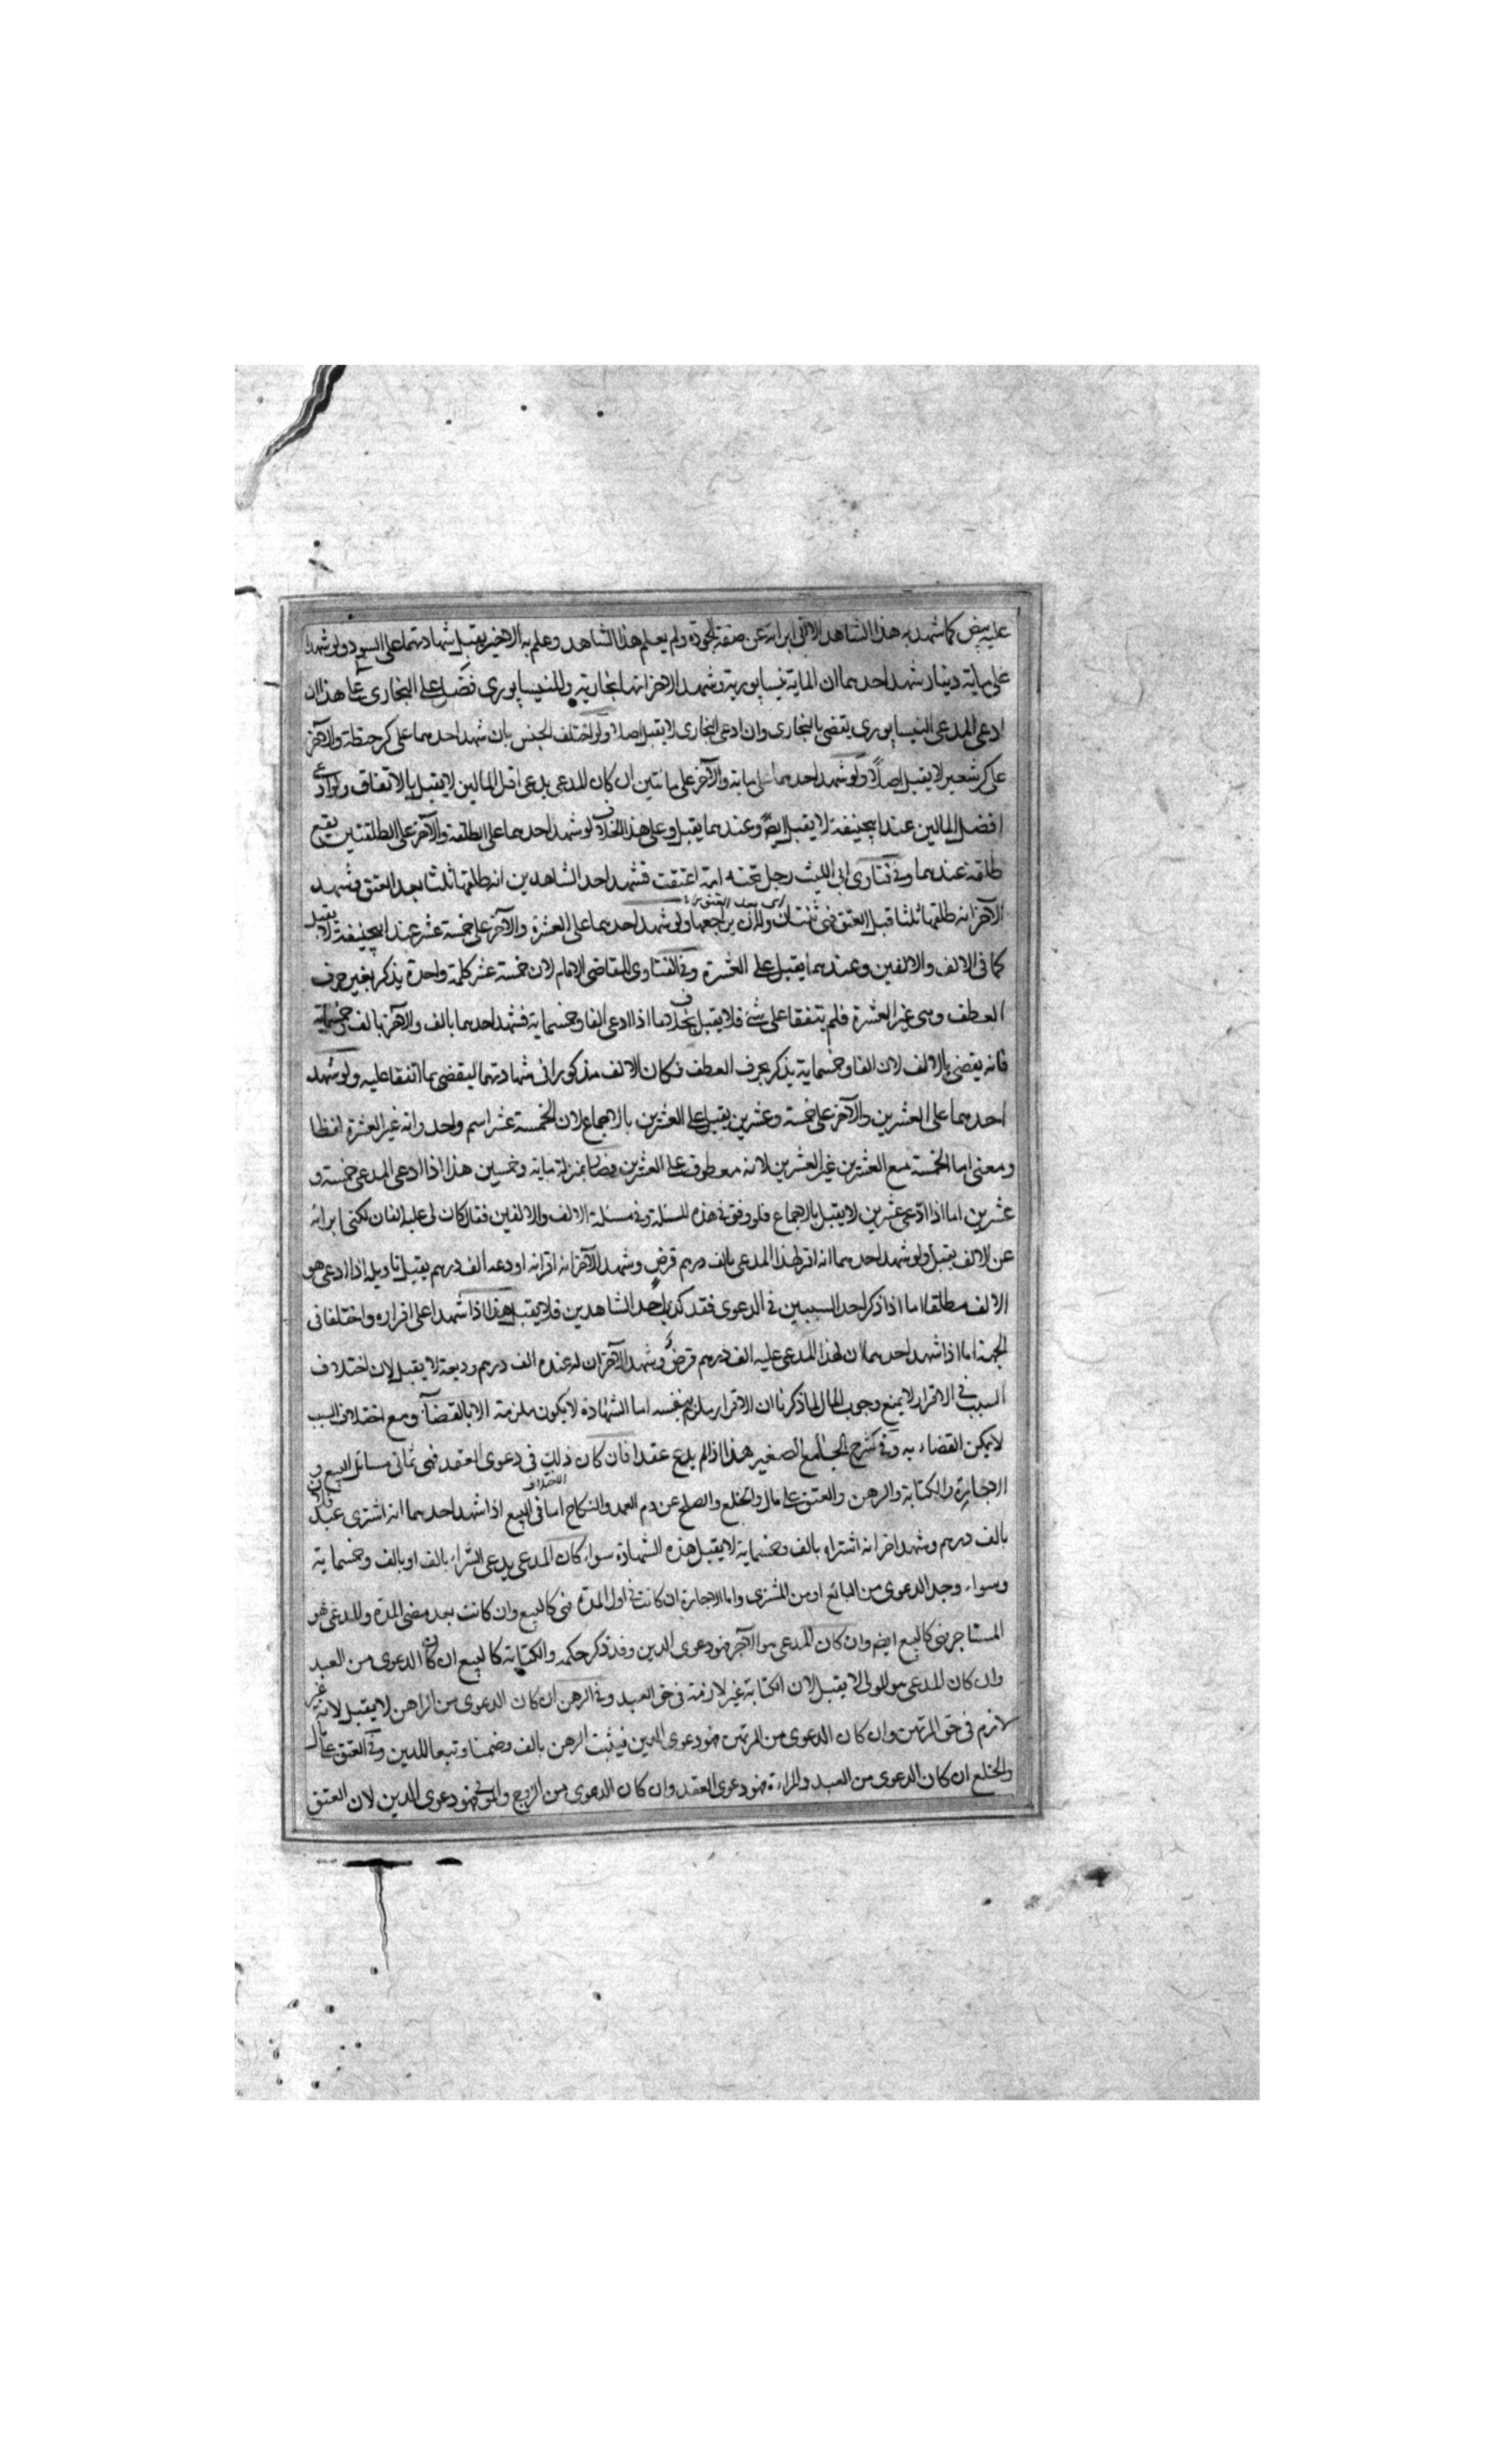 عليه بيض كما شهد به هذا الشاهد الا انى ابرأته عن صفة الجودة ولم يعلم هذا الشاهد وعلم به الاخير يقبل شهادتهما على السود ولو شهدا
على ماية دينار شهد احدهما ان الماية نيسابورية وشهد الاخر انها بخارية والنيسابورى فضل على البخارى هذا ان
ادعى المدعى النيسابورى يقضى بالبخارى وان ادعى البخارى لا يقبل اصلا ولو اختلف الجنس بان شهد احدهما على كر حنطة والآخر
على كر شعير لا يقبل اصلاً ولو شهد احدهما على ماية والآخر على مائتين ان كان المدعى يدعى اقل المالين لا يقبل بالاتفاق ولو ادعى
افضل المالين عند ابيحنيفة لا يقبل ايضً وعندهما يقبل وعلى هذا الخلاف لو شهد احدهما على الطلقة والآخر على الطلقتين يقع
طلقة عندهما وفى فتاوى ابى الليث رجل تحته امة اعتقت فشهد احد الشاهدين انه طلقها ثلثا بعد العتق وشهد
الآخر انه طلقها ثلثا قبل العتق فهى ثنتان وله ان يراجعها ولو شهد احدهما على العشرة والآخر على خمسة عشر عند ابيحنيفة لا يقبل
كما فى الالف والالفين وعندهما يقبل على العشرة وفى الفتاوى للقاضى الامام لان خمسة عشر كلمة واحدة يذكر بغير حرف
العطف وهى غير العشرة فلم يتفقا على شئ فلا يقبل بخلاف ما اذا ادعى الفا وخمسماية فشهد احدهما بالف والاخر بالف وخمسماية
فانه يقضى بالالف لان الفا وخمسماية يذكر بحرف العطف فكان الالف مذكورا فى شهادتهما ليقضى بما اتفقا عليه ولو شهد
احدهما على العشرين والآخر على خمسة وعشرين يقبل على العشرين بالاجماع لان الخمسة عشر اسم واحد وانه غير العشرة لفظا
ومعنى اما الخمسة مع العشرين غير العشرين لانه معطوف على العشرين فصار بمنزلة ماية وخمسين هذا اذا ادعى المدعى خمسة و
عشرين اما اذا ادّعى عشرين لا يقبل بالاجماع فلو وفق فى هذه المسئلة وفى مسئلة الالف والالفين فقال كان لى عليه الفان لكنى ابرأته
عن الالف يقبل ولو شهد احدهما انه اقر لهذا المدعى بالف درهم قرض وشهد الآخر انه اقر انه اودعه الف درهم يقبل تاويله اذا ادعى هو
الالف مطلقا اما اذا ذكر احد السببين فى الدعوى فقد كذب احد الشاهدين فلا يقبل هذا اذا شهدا على اقراره واختلفا فى
الجهة اما اذا شهد احدهما ان لهذا المدعى عليه الف درهم قرض وشهد الآخر ان له عنده الف درهم وديعة لا يقبل لان اختلاف
السبب فى الاقرار لا يمنع وجوب المال لما ذكرنا ان الاقرار ملزم بنفسه اما الشهادة لا يكون ملزمة الا بالقضاء ومع اختلاف السبب
لا يمكن القضاء به وفى شرح الجامع الصغير هذا اذا لم يدع عقدا فان كان ذلك فى دعوى العقد فهى ثمانى مسائل البيع و
الاجارة والكتابة والرهن والعتق على مال والخلع والصلح عن دم العمد والنكاح اما فى البيع اذا شهد احدهما انه اشترى عبد فلان
بالف درهم وشهد اخر انه اشتراه بالف وخمسماية لا يقبل هذه الشهادة سواء كان المدعى يدعى الشراء بالف او بالف وخمسماية
وسواء وجد الدعوى من البائع او من المشترى واما الاجارة ان كانت فى اول المدة فهى كالبيع وان كانت بعد مضى المدة والمدعى هو
المستاجر فهى كالبيع ايضم وان كان المدعى هو الآجر فهو دعوى الدين وقد ذكر حكمه والكتابة كالبيع ان كان الدعوى من العبد
وان كان المدعى هو المولى لا يقبل لان الكتابة غير لازمة فى حق العبد وفى الرهن ان كان الدعوى من الراهن لا يقبل لانه غير
لازم فى حق المرتهن وان كان الدعوى من المرتهن فهو دعوى الدين فيثبت الرهن بالف وضمنا وتبعا للدين وفى العتق على مال
والخلع ان كان الدعوى من العبد والمراءة فهو دعوى العقد وان كان الدعوى من الزوج والمولى فهو دعوى الدين لان العتق